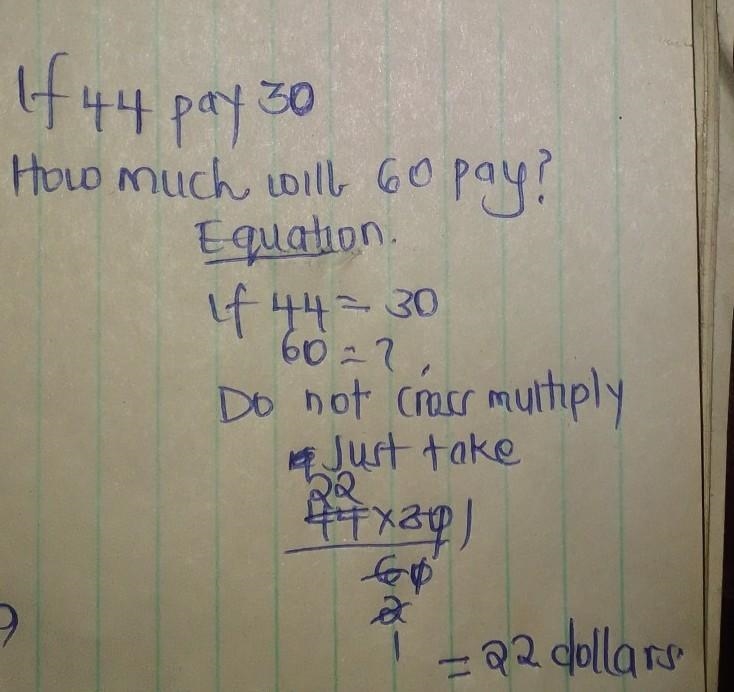 If 44 pay 30
How much will 60 pay?
Equation.
If 44 = 30
60 = ?
Do not cross multiply
Just take
22
44 x 30 1
60
2
1
= 22 dollars.